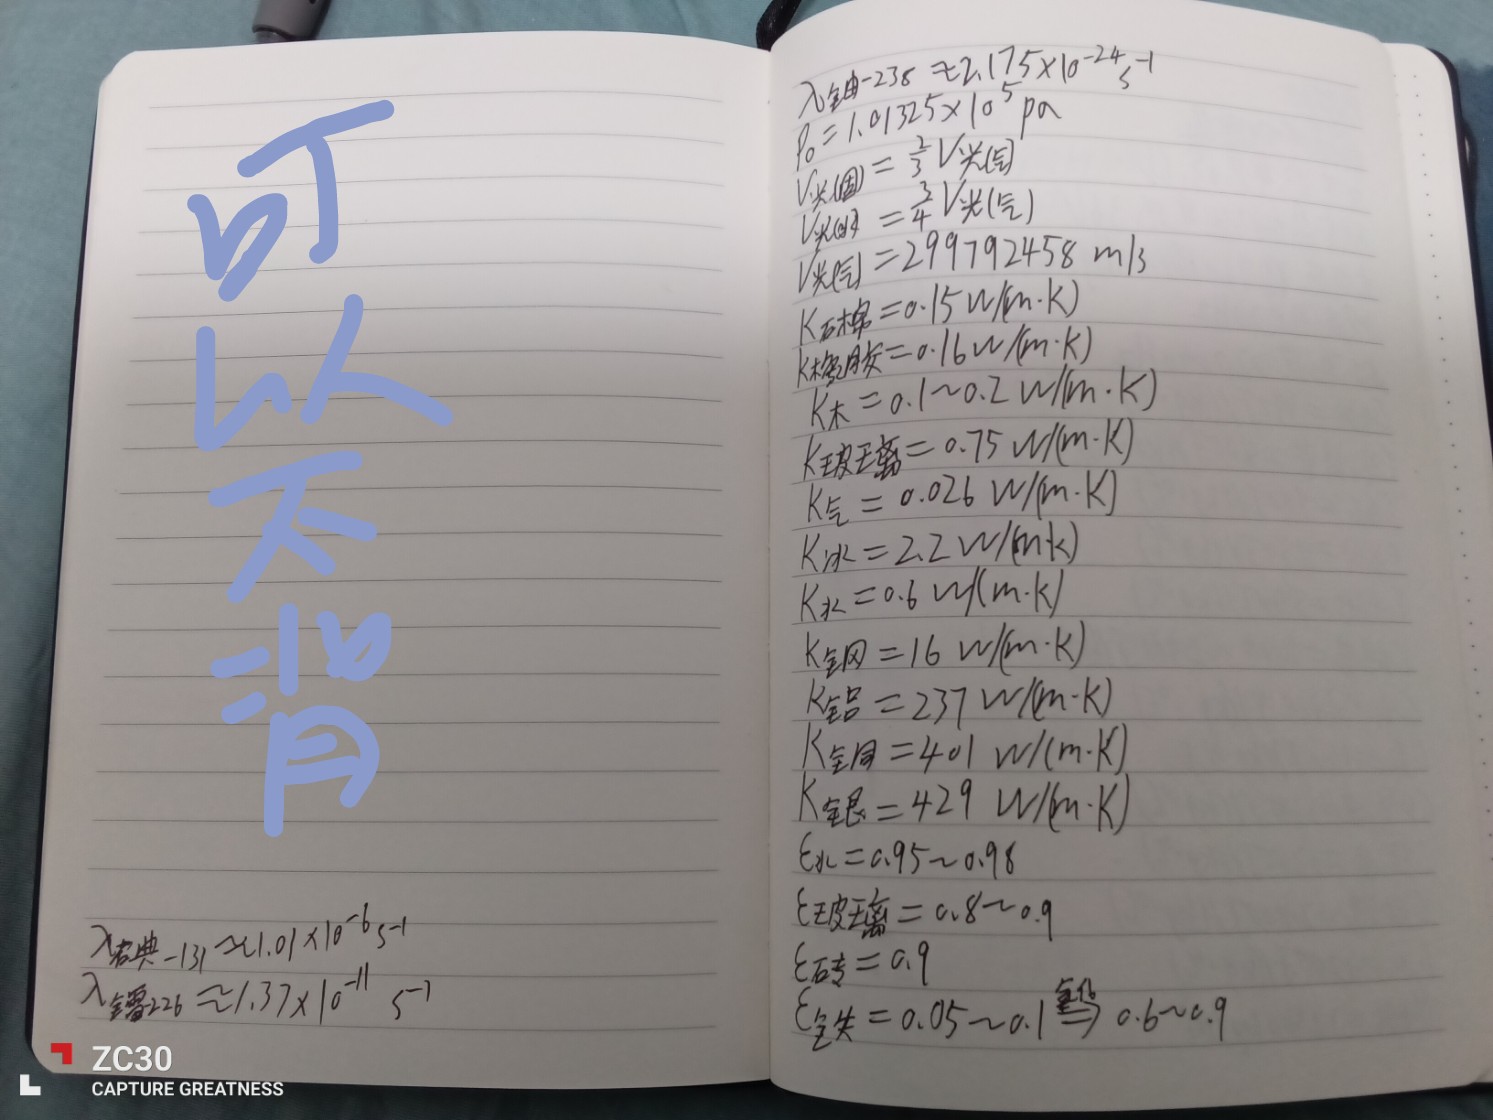 可
以
不
背
λ碘-131≈1.01×10⁻⁶s⁻¹
λ镭226≈1.37×10⁻¹¹ s⁻¹
λ铀-238≈2.175×10⁻²⁴s⁻¹
P₀=1.01325×10⁵pa
V光(固)=2/3V光(气)
V光(液)=3/4V光(气)
V光(气)=299792458 m/s
K石棉=0.15W/(m·K)
K橡胶=0.16W/(m·K)
K木=0.1~0.2W/(m·K)
K玻璃=0.75W/(m·K)
K气=0.026W/(m·K)
K冰=2.2W/(m·k)
K水=0.6W/(m·K)
K钢=16W/(m·K)
K铝=237W/(m·K)
K铜=401W/(m·K)
K银=429W/(m·K)
ε水=0.95~0.98
ε玻璃=0.8~0.9
ε砖=0.9
ε铁=0.05~0.1⇒0.6~0.9
ZC30
CAPTURE GREATNESS